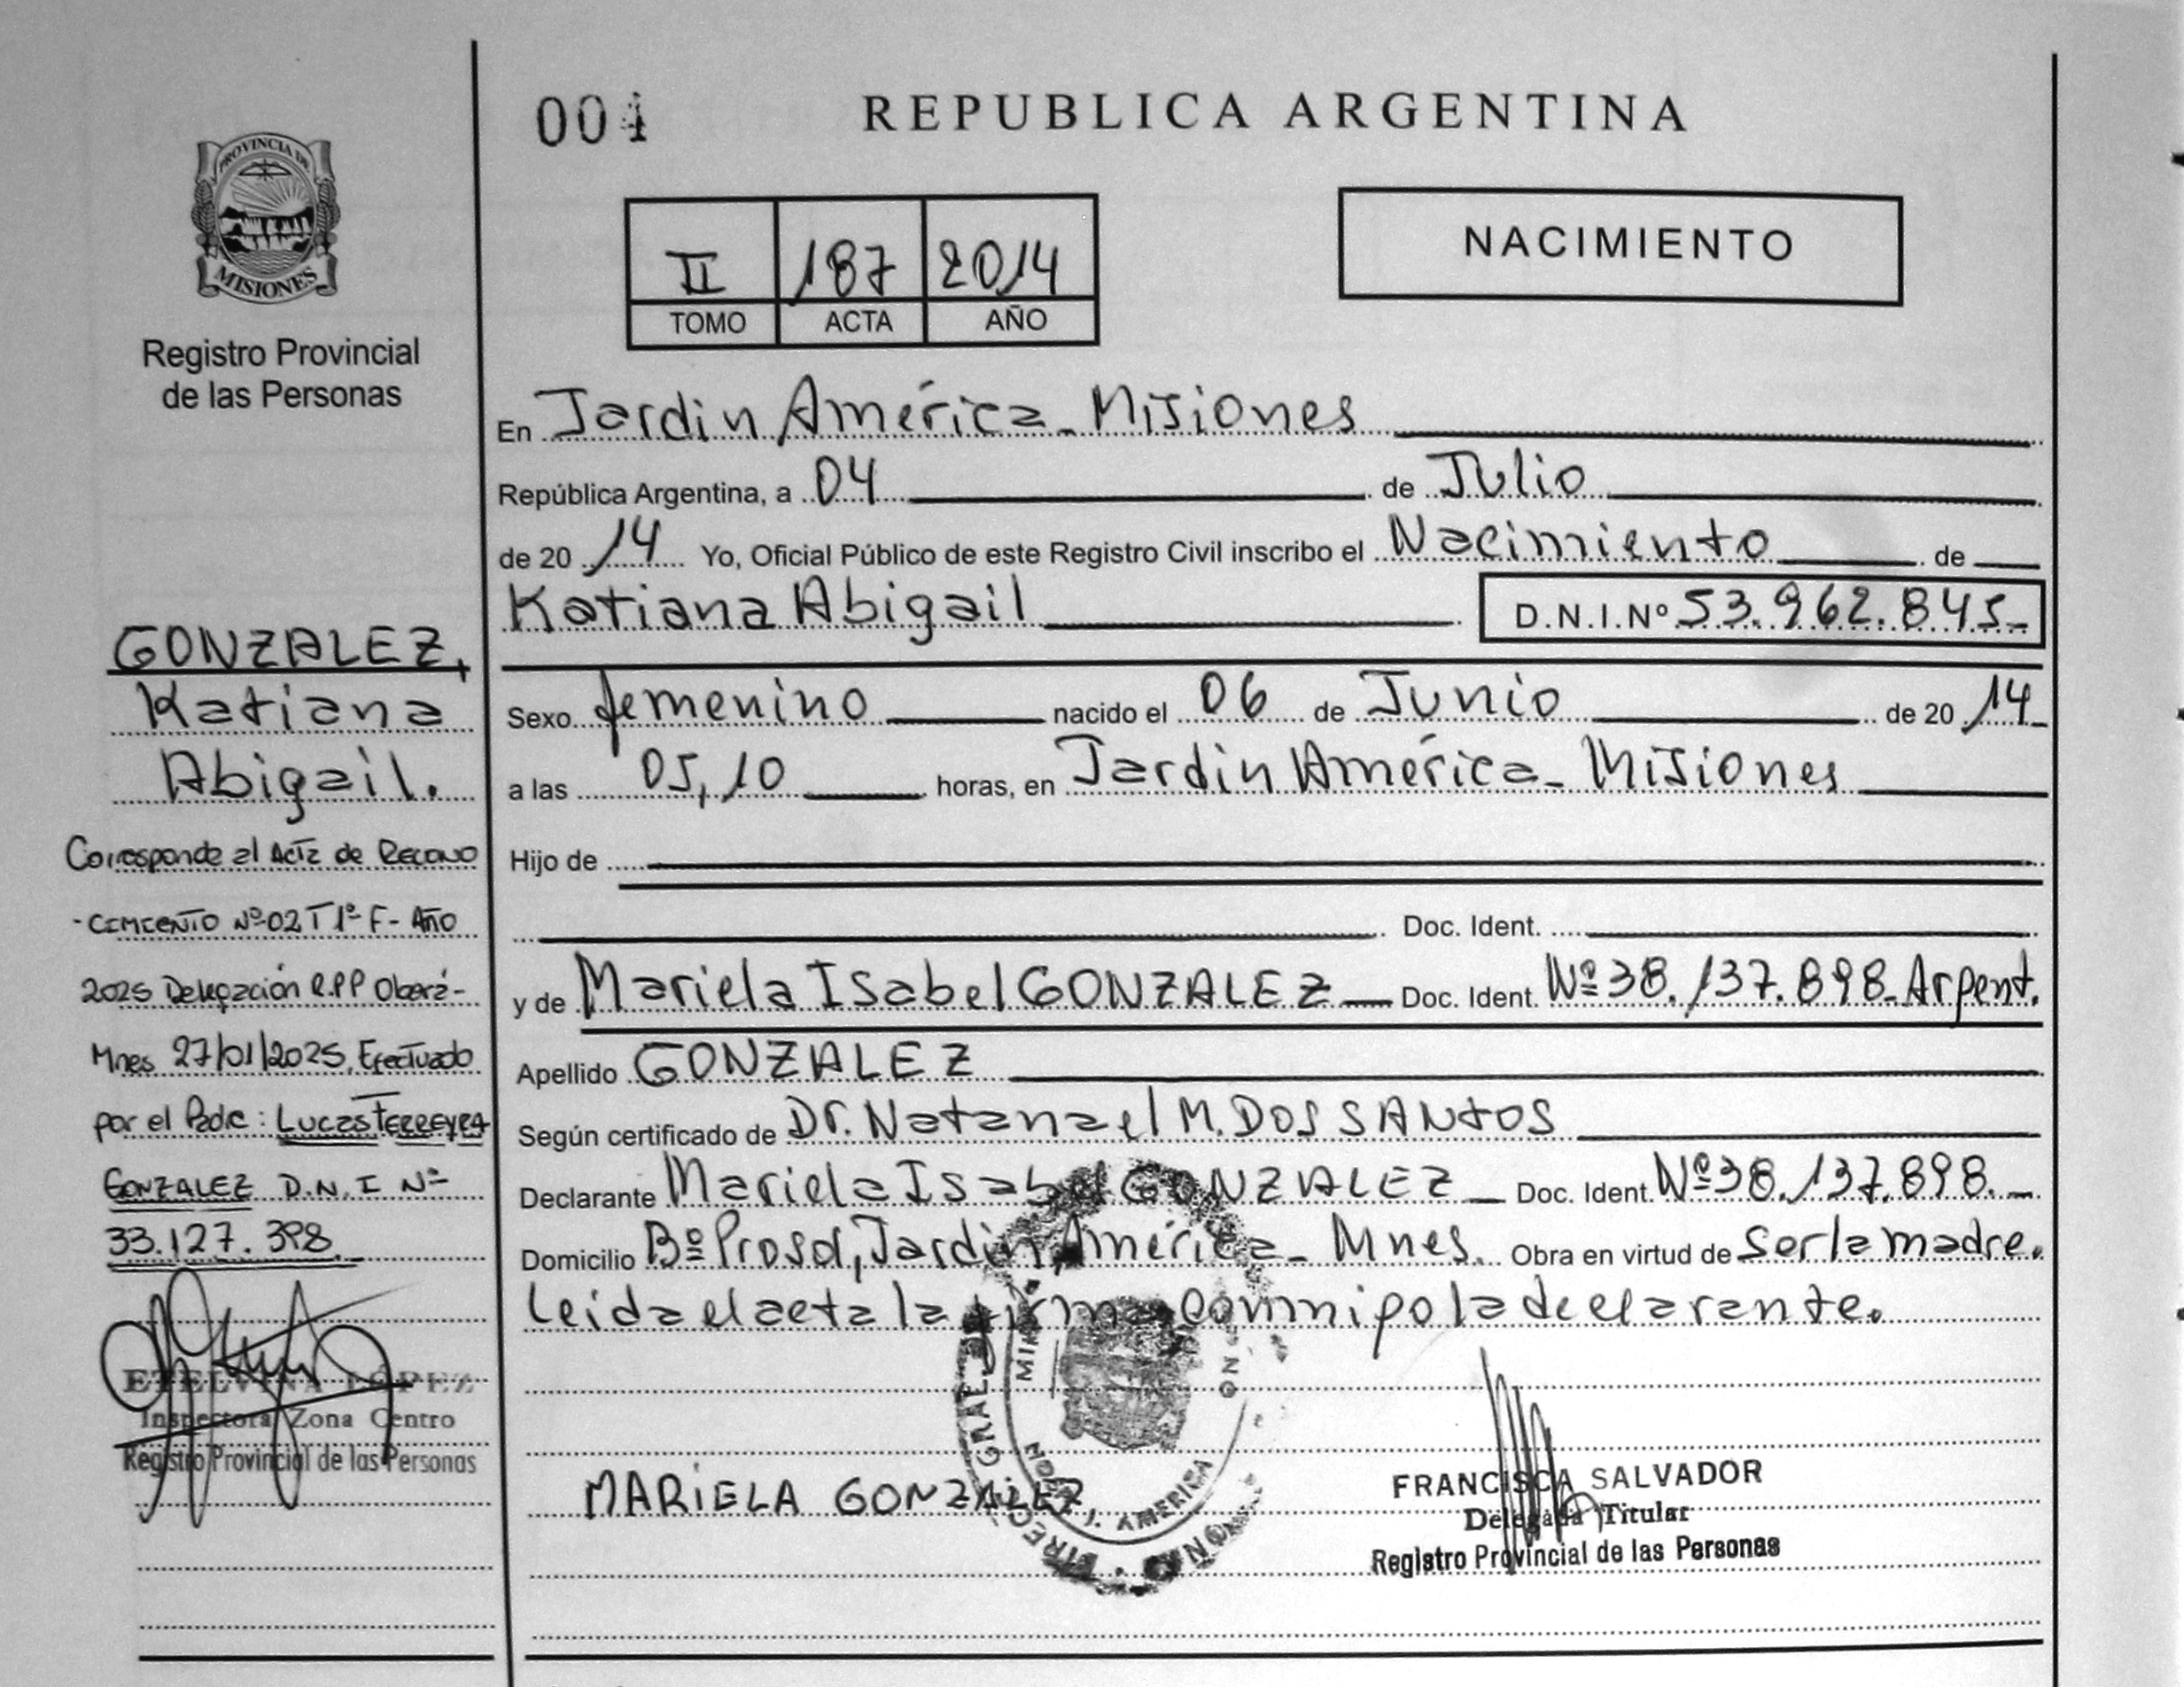 004
REPUBLICA ARGENTINA
PROVINCIA DE
MISIONES
Registro Provincial
de las Personas
II 187 2014
TOMO ACTA AÑO
NACIMIENTO
En Jardin América - Misiones
República Argentina, a 04 de Julio
de 20 14 Yo, Oficial Público de este Registro Civil inscribo el Nacimiento de
Katiana Abigail D.N.I.Nº 53.962.845-
Sexo femenino nacido el 06 de Junio de 20 14
a las 05,10 horas, en Jardin América - Misiones
Hijo de
Doc. Ident.
y de Mariela Isabel GONZALEZ Doc. Ident. Nº 38.137.898- Argent.
Apellido GONZALEZ
Según certificado de Dr. Natanael M. DOS SANTOS
Declarante Mariela Isabel GONZALEZ Doc. Ident. Nº 38.137.898.
Domicilio Bº Prosol, Jardin América - Mnes. Obra en virtud de ser la madre.
Leida el acta la firma conmigo la declarante.
MARIELA GONZALEZ
J. AMERICA
FRANCISCA SALVADOR
Delegada Titular
Registro Provincial de las Personas
GONZALEZ,
Katiana
Abigail.
Corresponde al Acta de Recono
-cimiento Nº 02 T 1º F- Año
2025 Delegación R.P.P Oberá-
Mnes 27/01/2025, Efectuado
por el Padre: Lucas FERREYRA
GONZALEZ D.N.I Nº
33.127.398
ETELVINA LÓPEZ
Inspectora Zona Centro
Registro Provincial de las Personas